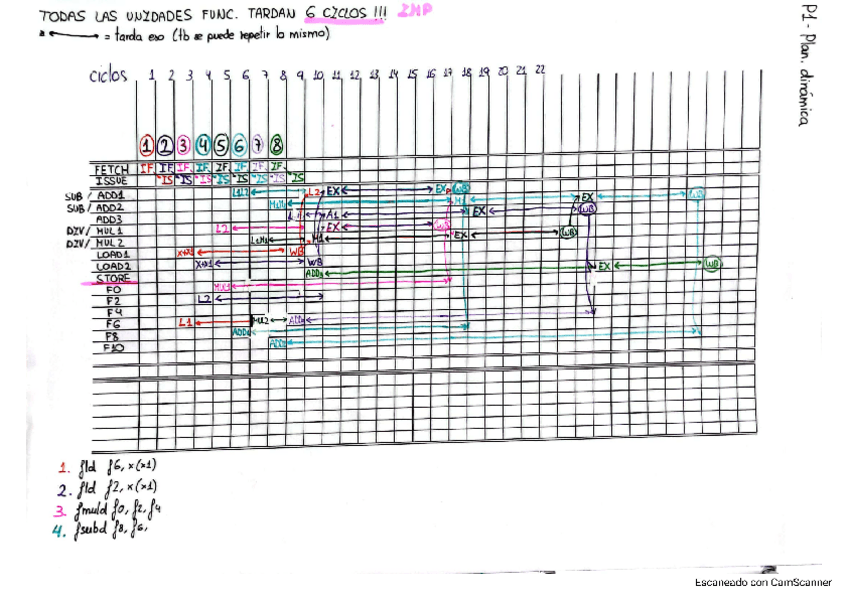 TODAS LAS UNIDADES FUNC. TARDAN 6 CICLOS !!! IMP
= tarda eso (tb se puede repetir lo mismo)
P1 - Plan. dinámica
ciclos 1 2 3 4 5 6 7 8 9 10 11 12 13 14 15 16 17 18 19 20 21 22
1 2 3 4 5 6 7 8
FETCH IF IF IF IF IF IF IF IF
ISSUE IS IS IS IS IS IS IS IS
SUB / ADD1 L2 EX EX WB EX WB
SUB / ADD2 EX WB
ADD3 A1
DIV / MUL1 L2 EX WB WB
DIV / MUL2 EX
LOAD1 WB
LOAD2 WB EX WB
STORE ADD2
F0 MUL1
F2 L2
F4
F6 L1 MUL2
F8
F10
1. fld f6, x(x1)
2. fld f2, x(x1)
3. fmuld f0, f2, f4
4. fsubd f8, f6,
Escaneado con CamScanner